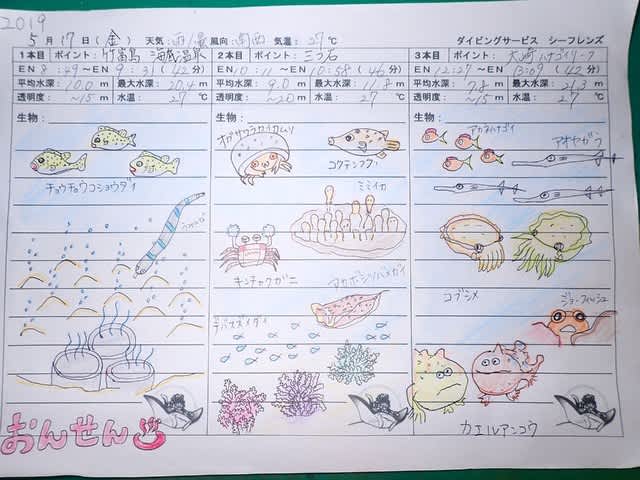 2019
5月17日(金) 天気:雨/曇 風向:南西 気温:27℃ ダイビングサービス シーフレンズ
1本目 ポイント:竹富島 海底温泉
EN 8:49～EN 9:31(42分)
平均水深:10.0m 最大水深:20.4m
透明度:～15m 水温:27℃
生物:
チョウチョウコショウダイ
おんせん♨
2本目 ポイント:三つ石
EN 10:11～EN 10:58(46分)
平均水深:9.0m 最大水深:11.8m
透明度:～20m 水温:27℃
生物:
オオサクラカイカムリ
コクテンフグ
ミミイカ
キンチャクガニ
アカボシツバメガイ
デバスズメダイ
3本目 ポイント:大崎ハナゴイリーフ
EN 12:27～EN 13:09(42分)
平均水深:7.8m 最大水深:21.3m
透明度:～15m 水温:27℃
生物:
アカネハナゴイ
アオヤガラ
コブシメ
ジョーフィッシュ
カエルアンコウ